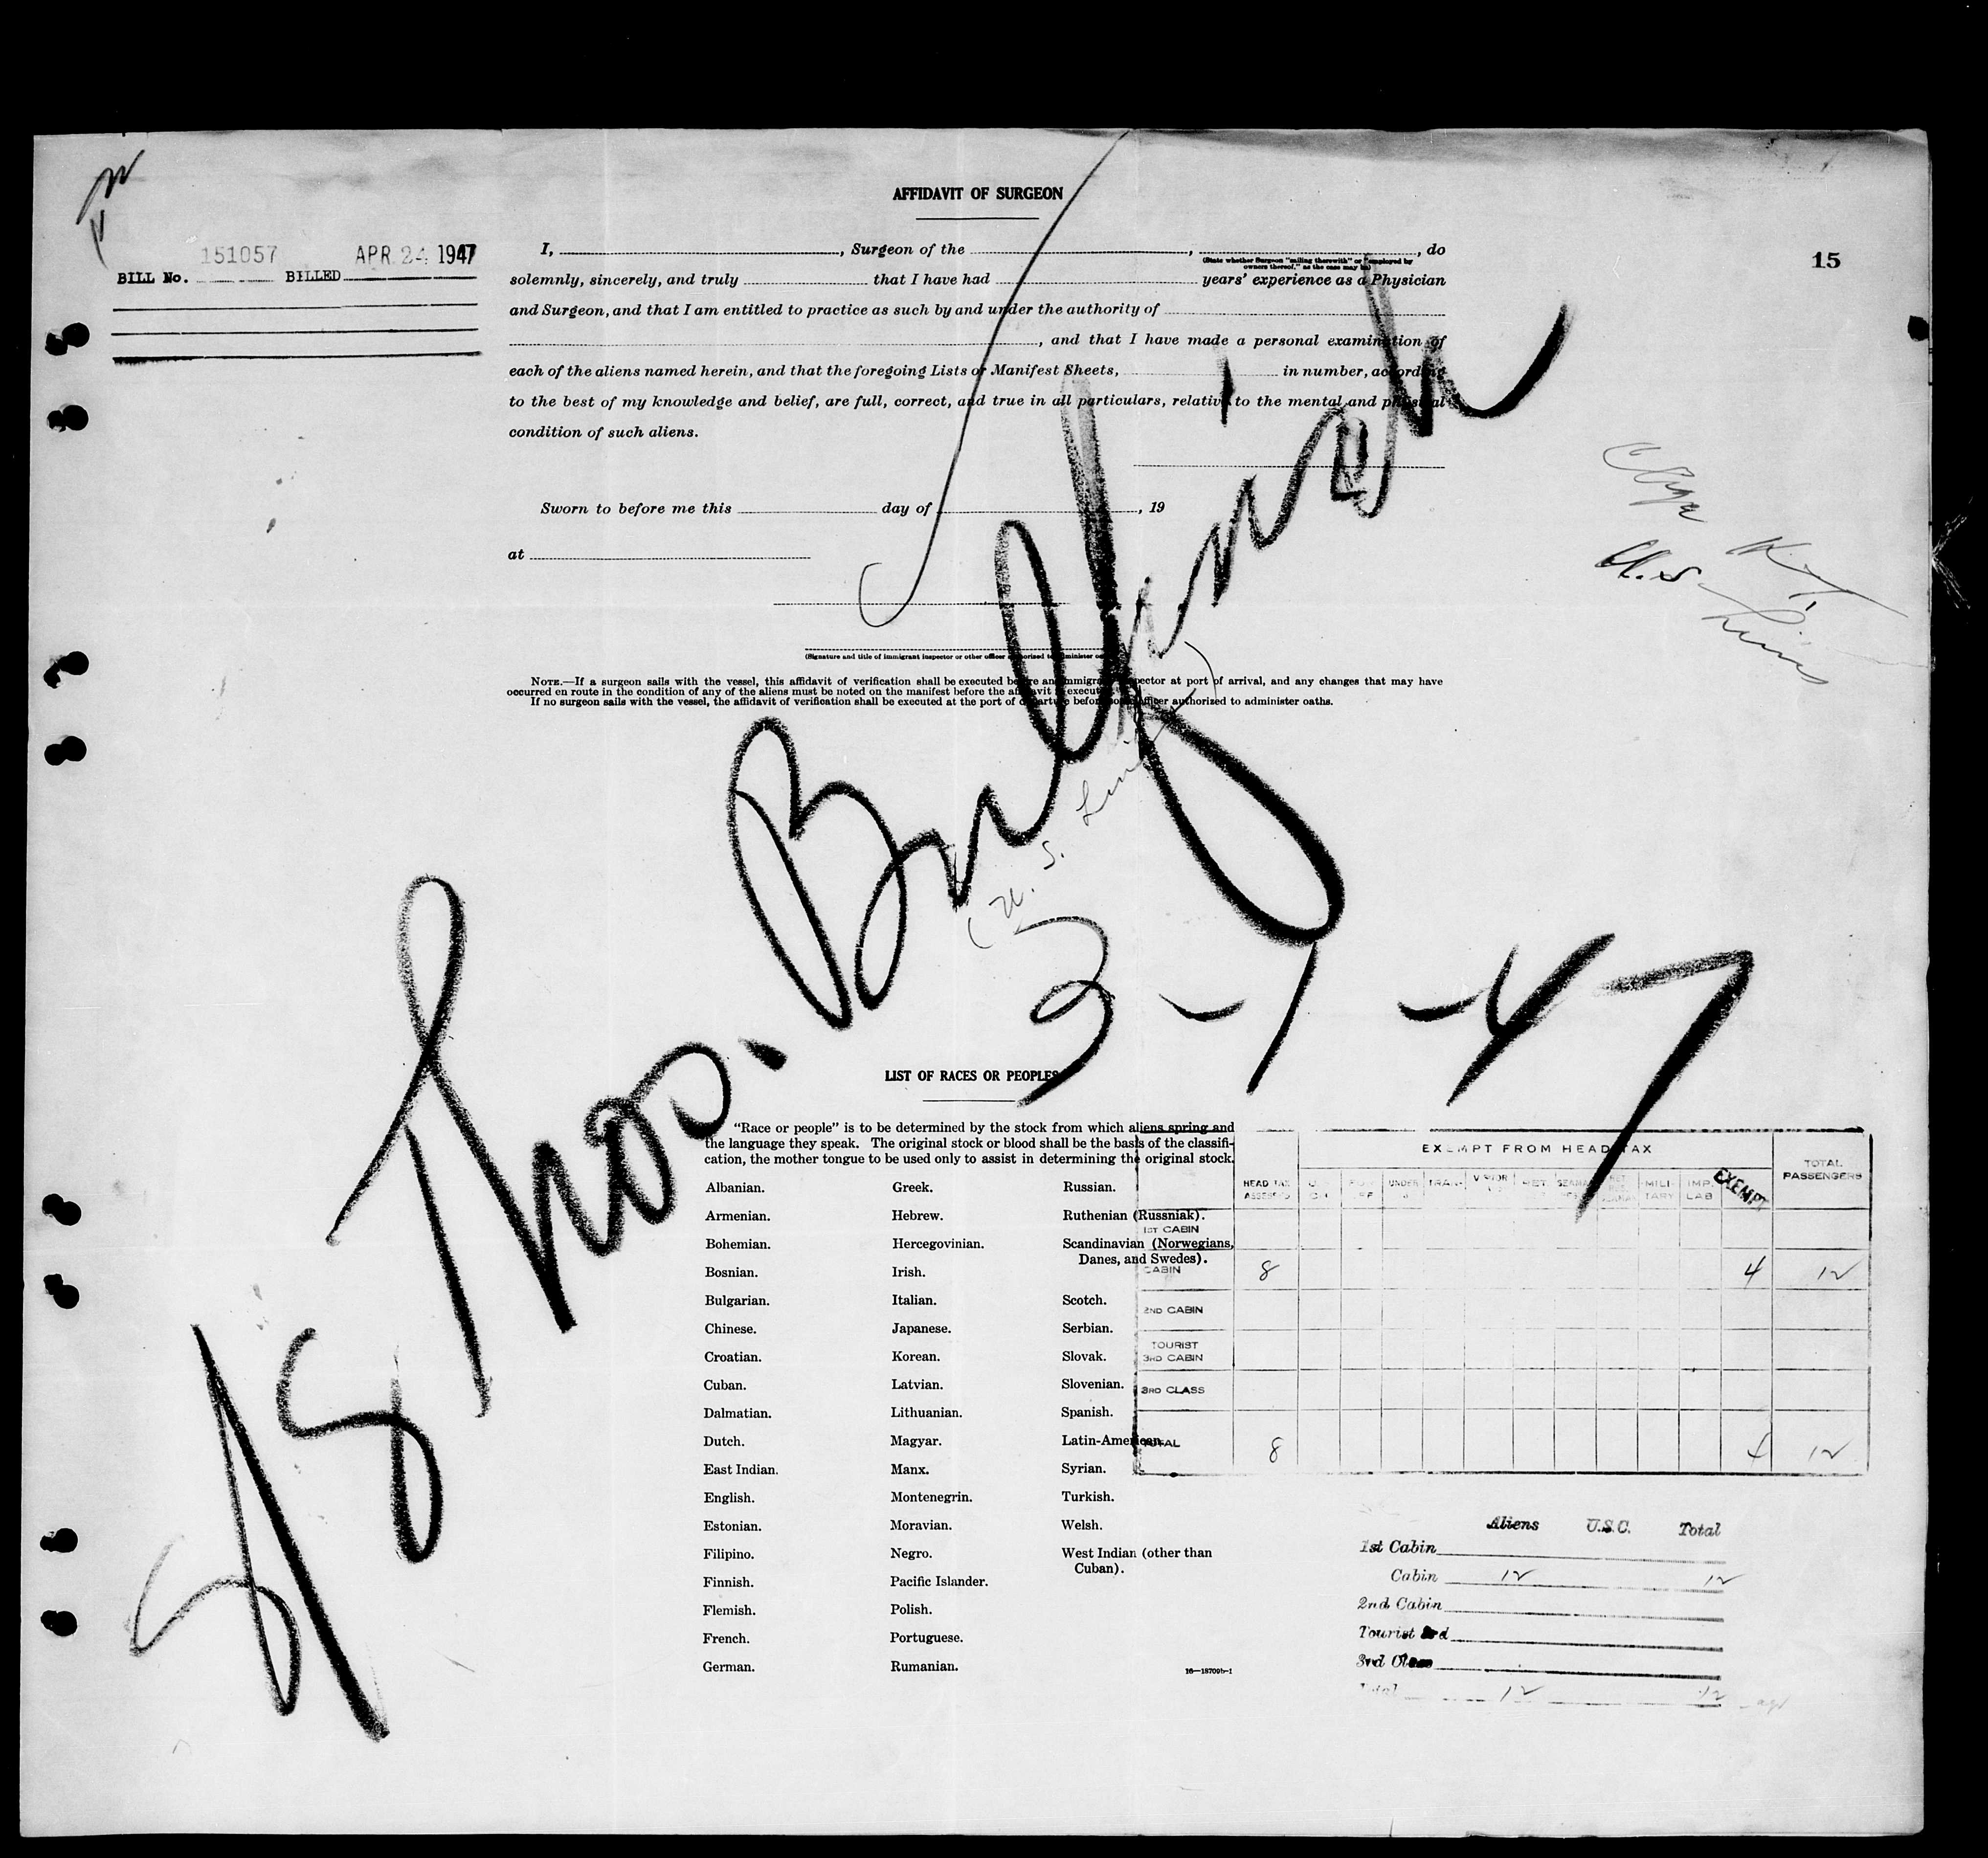 AFFIDAVIT OF SURGEON
15
151057 APR 24 1947
BILL No. BILLED
I, , Surgeon of the , , do
(State whether Surgeon "sailing therewith" or "employed by owners thereof," as the case may be)
solemnly, sincerely, and truly that I have had years' experience as a Physician
and Surgeon, and that I am entitled to practice as such by and under the authority of
, and that I have made a personal examination of
each of the aliens named herein, and that the foregoing Lists or Manifest Sheets, in number, according
to the best of my knowledge and belief, are full, correct, and true in all particulars, relative to the mental and physical
condition of such aliens.
Sworn to before me this day of , 19
at
(Signature and title of immigrant inspector or other officer authorized to administer oaths)
NOTE.—If a surgeon sails with the vessel, this affidavit of verification shall be executed before an immigrant inspector at port of arrival, and any changes that may have
occurred en route in the condition of any of the aliens must be noted on the manifest before the affidavit is executed.
If no surgeon sails with the vessel, the affidavit of verification shall be executed at the port of departure before some officer authorized to administer oaths.
U.S. Lines
(U. S. Lines)
S/S Thos.
3-1-47
LIST OF RACES OR PEOPLES
"Race or people" is to be determined by the stock from which aliens spring and
the language they speak. The original stock or blood shall be the basis of the classifi-
cation, the mother tongue to be used only to assist in determining the original stock.
Albanian. Greek. Russian.
Armenian. Hebrew. Ruthenian (Russniak).
Bohemian. Hercegovinian. Scandinavian (Norwegians,
Danes, and Swedes).
Bosnian. Irish.
Bulgarian. Italian. Scotch.
Chinese. Japanese. Serbian.
Croatian. Korean. Slovak.
Cuban. Latvian. Slovenian.
Dalmatian. Lithuanian. Spanish.
Dutch. Magyar. Latin-American.
East Indian. Manx. Syrian.
English. Montenegrin. Turkish.
Estonian. Moravian. Welsh.
Filipino. Negro. West Indian (other than
Cuban).
Finnish. Pacific Islander.
Flemish. Polish.
French. Portuguese.
German. Rumanian.
16—18709b-1
EXEMPT FROM HEAD TAX
TOTAL PASSENGERS
HEAD TAX ASSESSED UNDER TRAN. VISITOR RET. MILI- TARY IMP. LAB EXEMPT
1ST CABIN
CABIN 8 4 12
2ND CABIN
TOURIST
3RD CABIN
3RD CLASS
TOTAL 8 4 12
Aliens U.S.C. Total
1st Cabin
Cabin 12 12
2nd Cabin
Tourist 3rd
3rd Class
Total 12 12